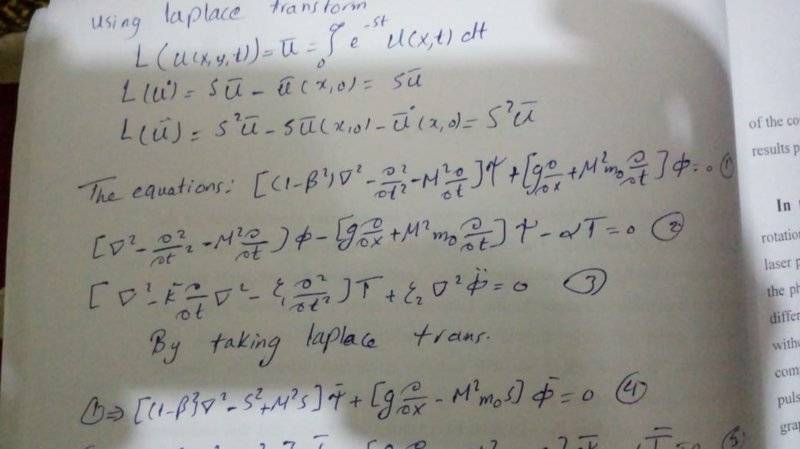 using laplace transform
L(u(x,y,t)) = ū = ∫₀^∞ e^{-st} u(x,t) dt
L(u̇) = Sū - ū(x,0) = Sū
L(ü) = S²ū - Sū(x,0) - ū̇(x,0) = S²ū
The equations: [(1-β²)∇² - ∂²/∂t² - M²∂/∂t]Ψ + [g∂/∂x + M²m₀∂/∂t]ϕ = 0 ①
[∇² - ∂²/∂t² - M²∂/∂t)ϕ - [g∂/∂x + M²m₀∂/∂t]Ψ - αT = 0 ②
[∇² - k̄∂/∂t∇² - ξ₁∂²/∂t²]T + ξ₂∇²ϕ̈ = 0 ③
By taking laplace trans.
① ⇒ [(1-β²)∇² - S² + M²S]Ψ̄ + [g∂/∂x - M²m₀S]ϕ̄ = 0 ④
⑤
of the co
results p
In
rotation
laser p
the ph
differ
witho
com
puls
grap